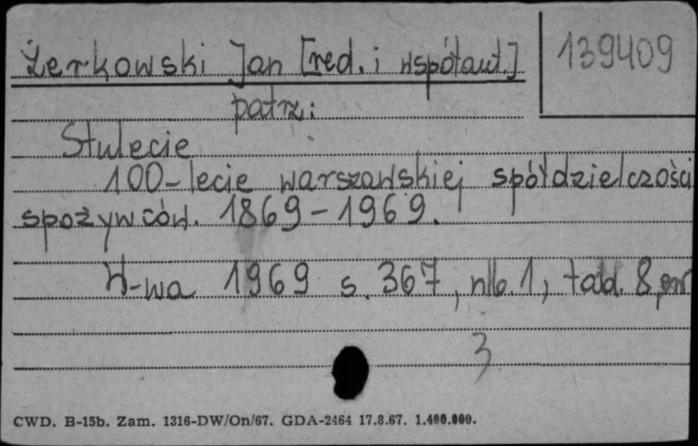 Żerkowski Jan [red. i współaut.]
139409
patrz:
Stulecie
100-lecie warszawskiej spółdzielczości
spożywców. 1869-1969.
W-wa 1969 s. 367, nlb. 1, tabl. 8,
3
CWD. B-15b. Zam. 1316-DW/On/67. GDA-2464 17.8.67. 1.400.000.